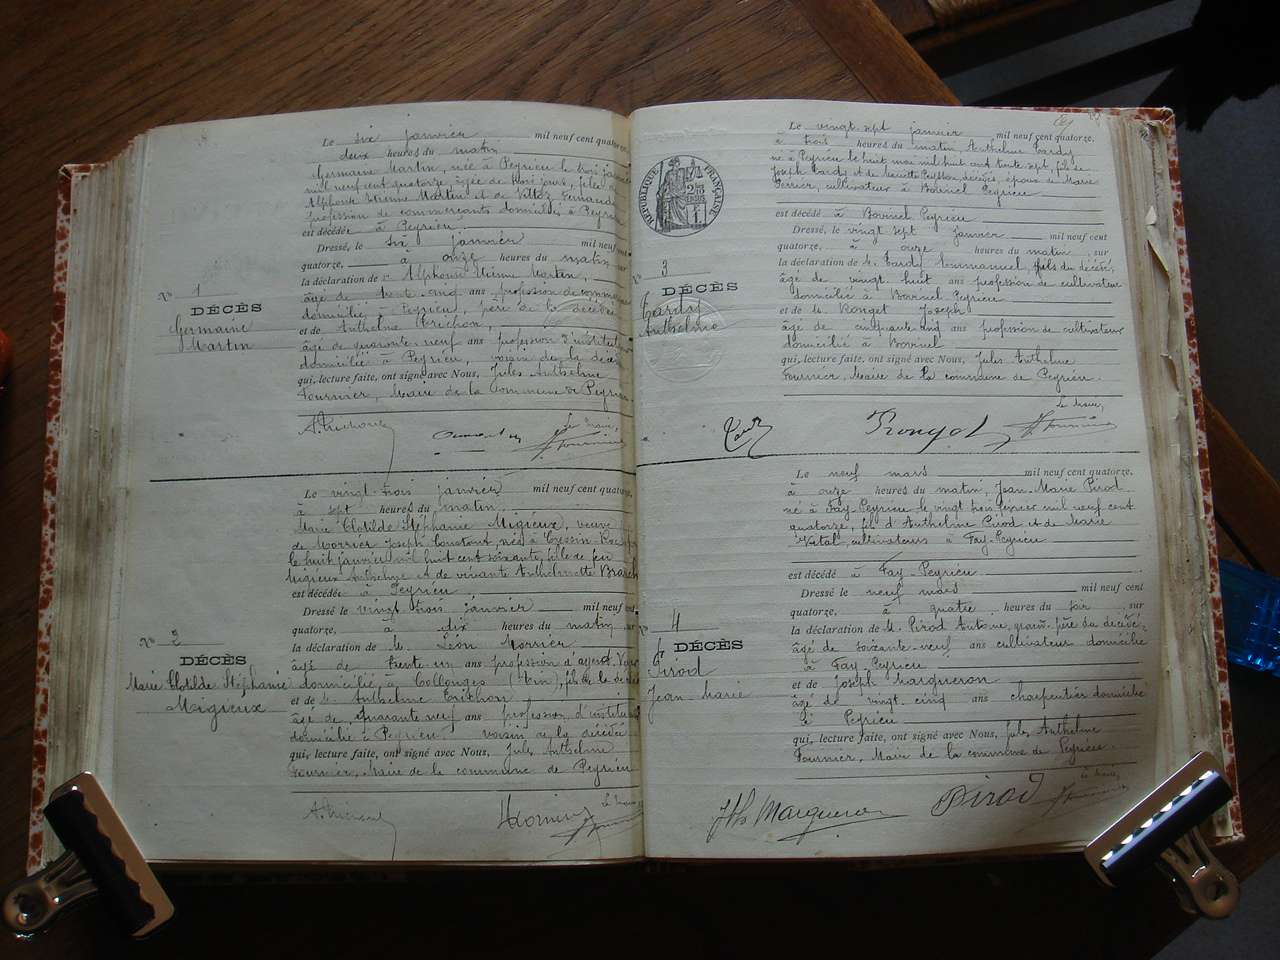 Le six janvier mil neuf cent quatorze,
à deux heures du matin
Germaine Martin, née à Peyrieu le trois janvier
mil neuf cent quatorze, âgée de trois jours, fille de
Alphonse Etienne Martin et de Fernande
profession de commerçants domiciliés à Peyrieu
est décédée à Peyrieu
Dressé, le six janvier mil neuf cent
quatorze, à onze heures du matin sur
la déclaration de M. Alphonse Etienne Martin,
âgé de trente cinq ans profession de commerçant
domicilié à Peyrieu, père de la décédée
et de Anthelme
âgé de quarante-neuf ans profession d'instituteur
domicilié à Peyrieu, voisin de la décédée
qui, lecture faite, ont signé avec Nous, Jules Anthelme
Fournier, Maire de la Commune de Peyrieu
Le Maire,
N° 1
DÉCÈS
Germaine
Martin
Le vingt-trois janvier mil neuf cent quatorze,
à sept heures du matin
Marie Clotilde Stéphanie Migieux, veuve
de Joseph Constant, née à
le huit janvier mil huit cent soixante, fille de feu
Migieux Anthelme et de vivante Anthelmette
est décédée à Peyrieu
Dressé le vingt trois janvier mil neuf cent
quatorze, à dix heures du matin sur
la déclaration de M. Léon
âgé de trente un ans profession d'agent
domicilié à Collonges (Ain), fils de la décédée
et de M. Anthelme
âgé de quarante neuf ans profession d'instituteur
domicilié à Peyrieu, voisin de la décédée
qui, lecture faite, ont signé avec Nous, Jules Anthelme
Fournier, Maire de la commune de Peyrieu
Le Maire
N° 2
DÉCÈS
Marie Clotilde Stéphanie
Migieux
Le vingt-sept janvier mil neuf cent quatorze,
à trois heures du matin Anthelme Tardy
né à Peyrieu le huit mai mil huit cent trente sept, fils de
Joseph Tardy et de Mariette décédés, époux de Marie
Perrier, cultivateur à Bovinel Peyrieu
est décédé à Bovinel Peyrieu
Dressé, le vingt sept janvier mil neuf cent
quatorze, à onze heures du matin sur
la déclaration de M. Tardy Emmanuel fils du décédé,
âgé de vingt huit ans profession de cultivateur
domicilié à Bovinel Peyrieu
et de M. Ronget Joseph
âgé de cinquante cinq ans profession de cultivateur
domicilié à Bovinel
qui, lecture faite, ont signé avec Nous, Jules Anthelme
Fournier, Maire de la commune de Peyrieu.
Le Maire,
Rongot
RÉPUBLIQUE FRANÇAISE
N° 3
DÉCÈS
Tardy
Anthelme
Le neuf mars mil neuf cent quatorze,
à onze heures du matin, Jean-Marie Pirod
né à Fay-Peyrieu le vingt trois février mil neuf cent
quatorze, fils d'Anthelme Pirod et de Marie
Vital, cultivateurs à Fay-Peyrieu
est décédé à Fay-Peyrieu
Dressé le neuf mars mil neuf cent
quatorze, à quatre heures du soir sur
la déclaration de M. Pirod Antoine, grand-père du décédé,
âgé de soixante-neuf ans cultivateur domicilié
à Fay-Peyrieu
et de Joseph Margueron
âgé de vingt cinq ans charpentier domicilié
à Peyrieu
qui, lecture faite, ont signé avec Nous, Jules Anthelme
Fournier, Maire de la commune de Peyrieu.
Le Maire,
Jh Margueron Pirod
N° 4
DÉCÈS
Pirod
Jean Marie